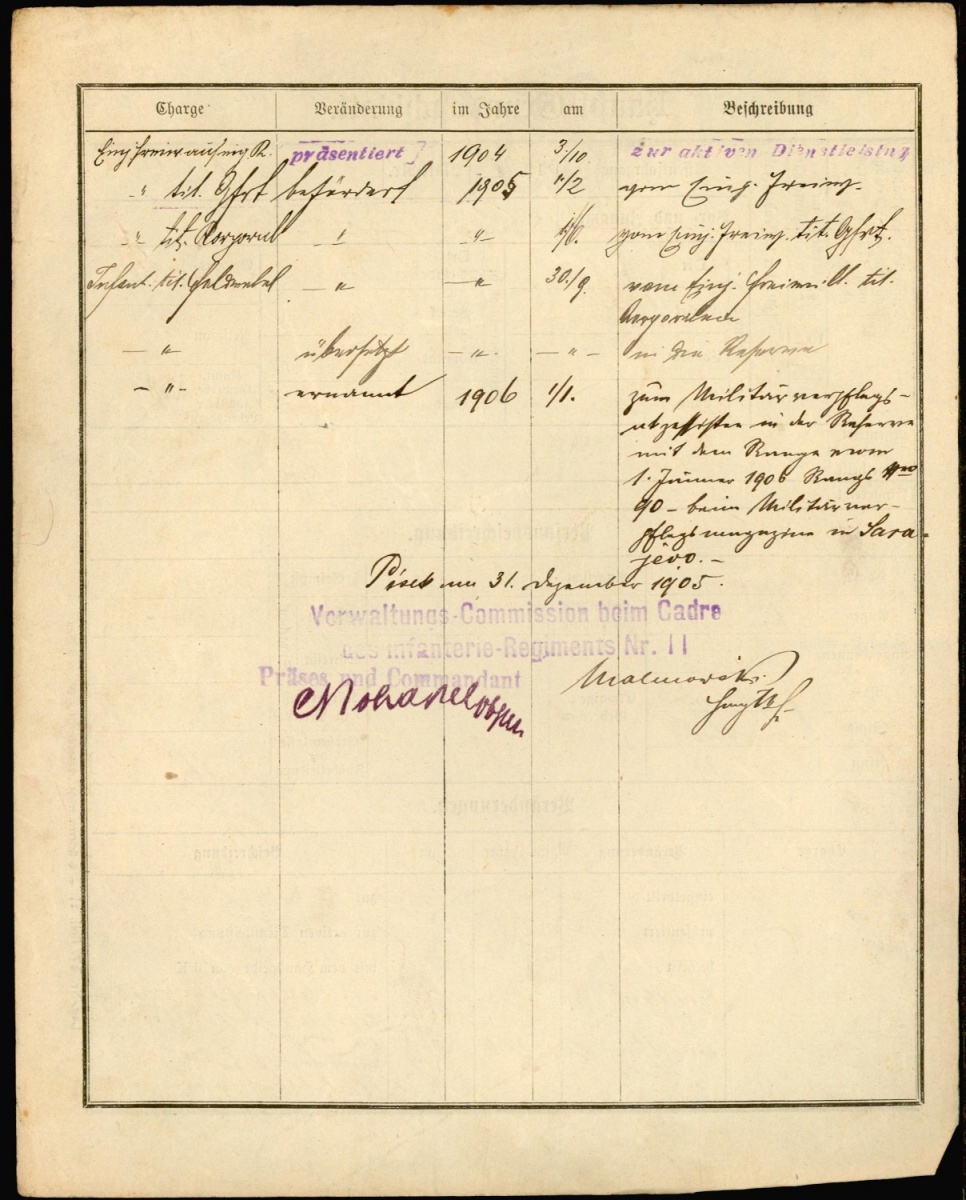 Charge Veränderung im Jahre am Beschreibung
Einj. Freiw. auf eig. K. präsentiert 1904 3/10. zur aktiven Dienstleistng
-"- tit. Gfrt befördert 1905 1/2 zum Einj. Freiw.
-"- tit. Korporal -"- -"- zum Einj. Freiw. tit. Gfrt.
Infant. tit. Feldwebel -"- -"- 30./9. vom Einj. Freiwill. tit.
Korporalen
-"- übersetzt -"- -"- in die Reserve
-"- ernannt 1906 1/1. zum Militärverpflegs-
akzessisten in der Reserve
mit dem Range vom
1. Jänner 1906 Rangs Nro
90 – beim Militärver-
pflegsmagazine in Sara-
jevo. –
Pisek am 31. Dezember 1905.
Verwaltungs-Commission beim Cadre
des Infanterie-Regiments Nr. 11
Präses und Commandant